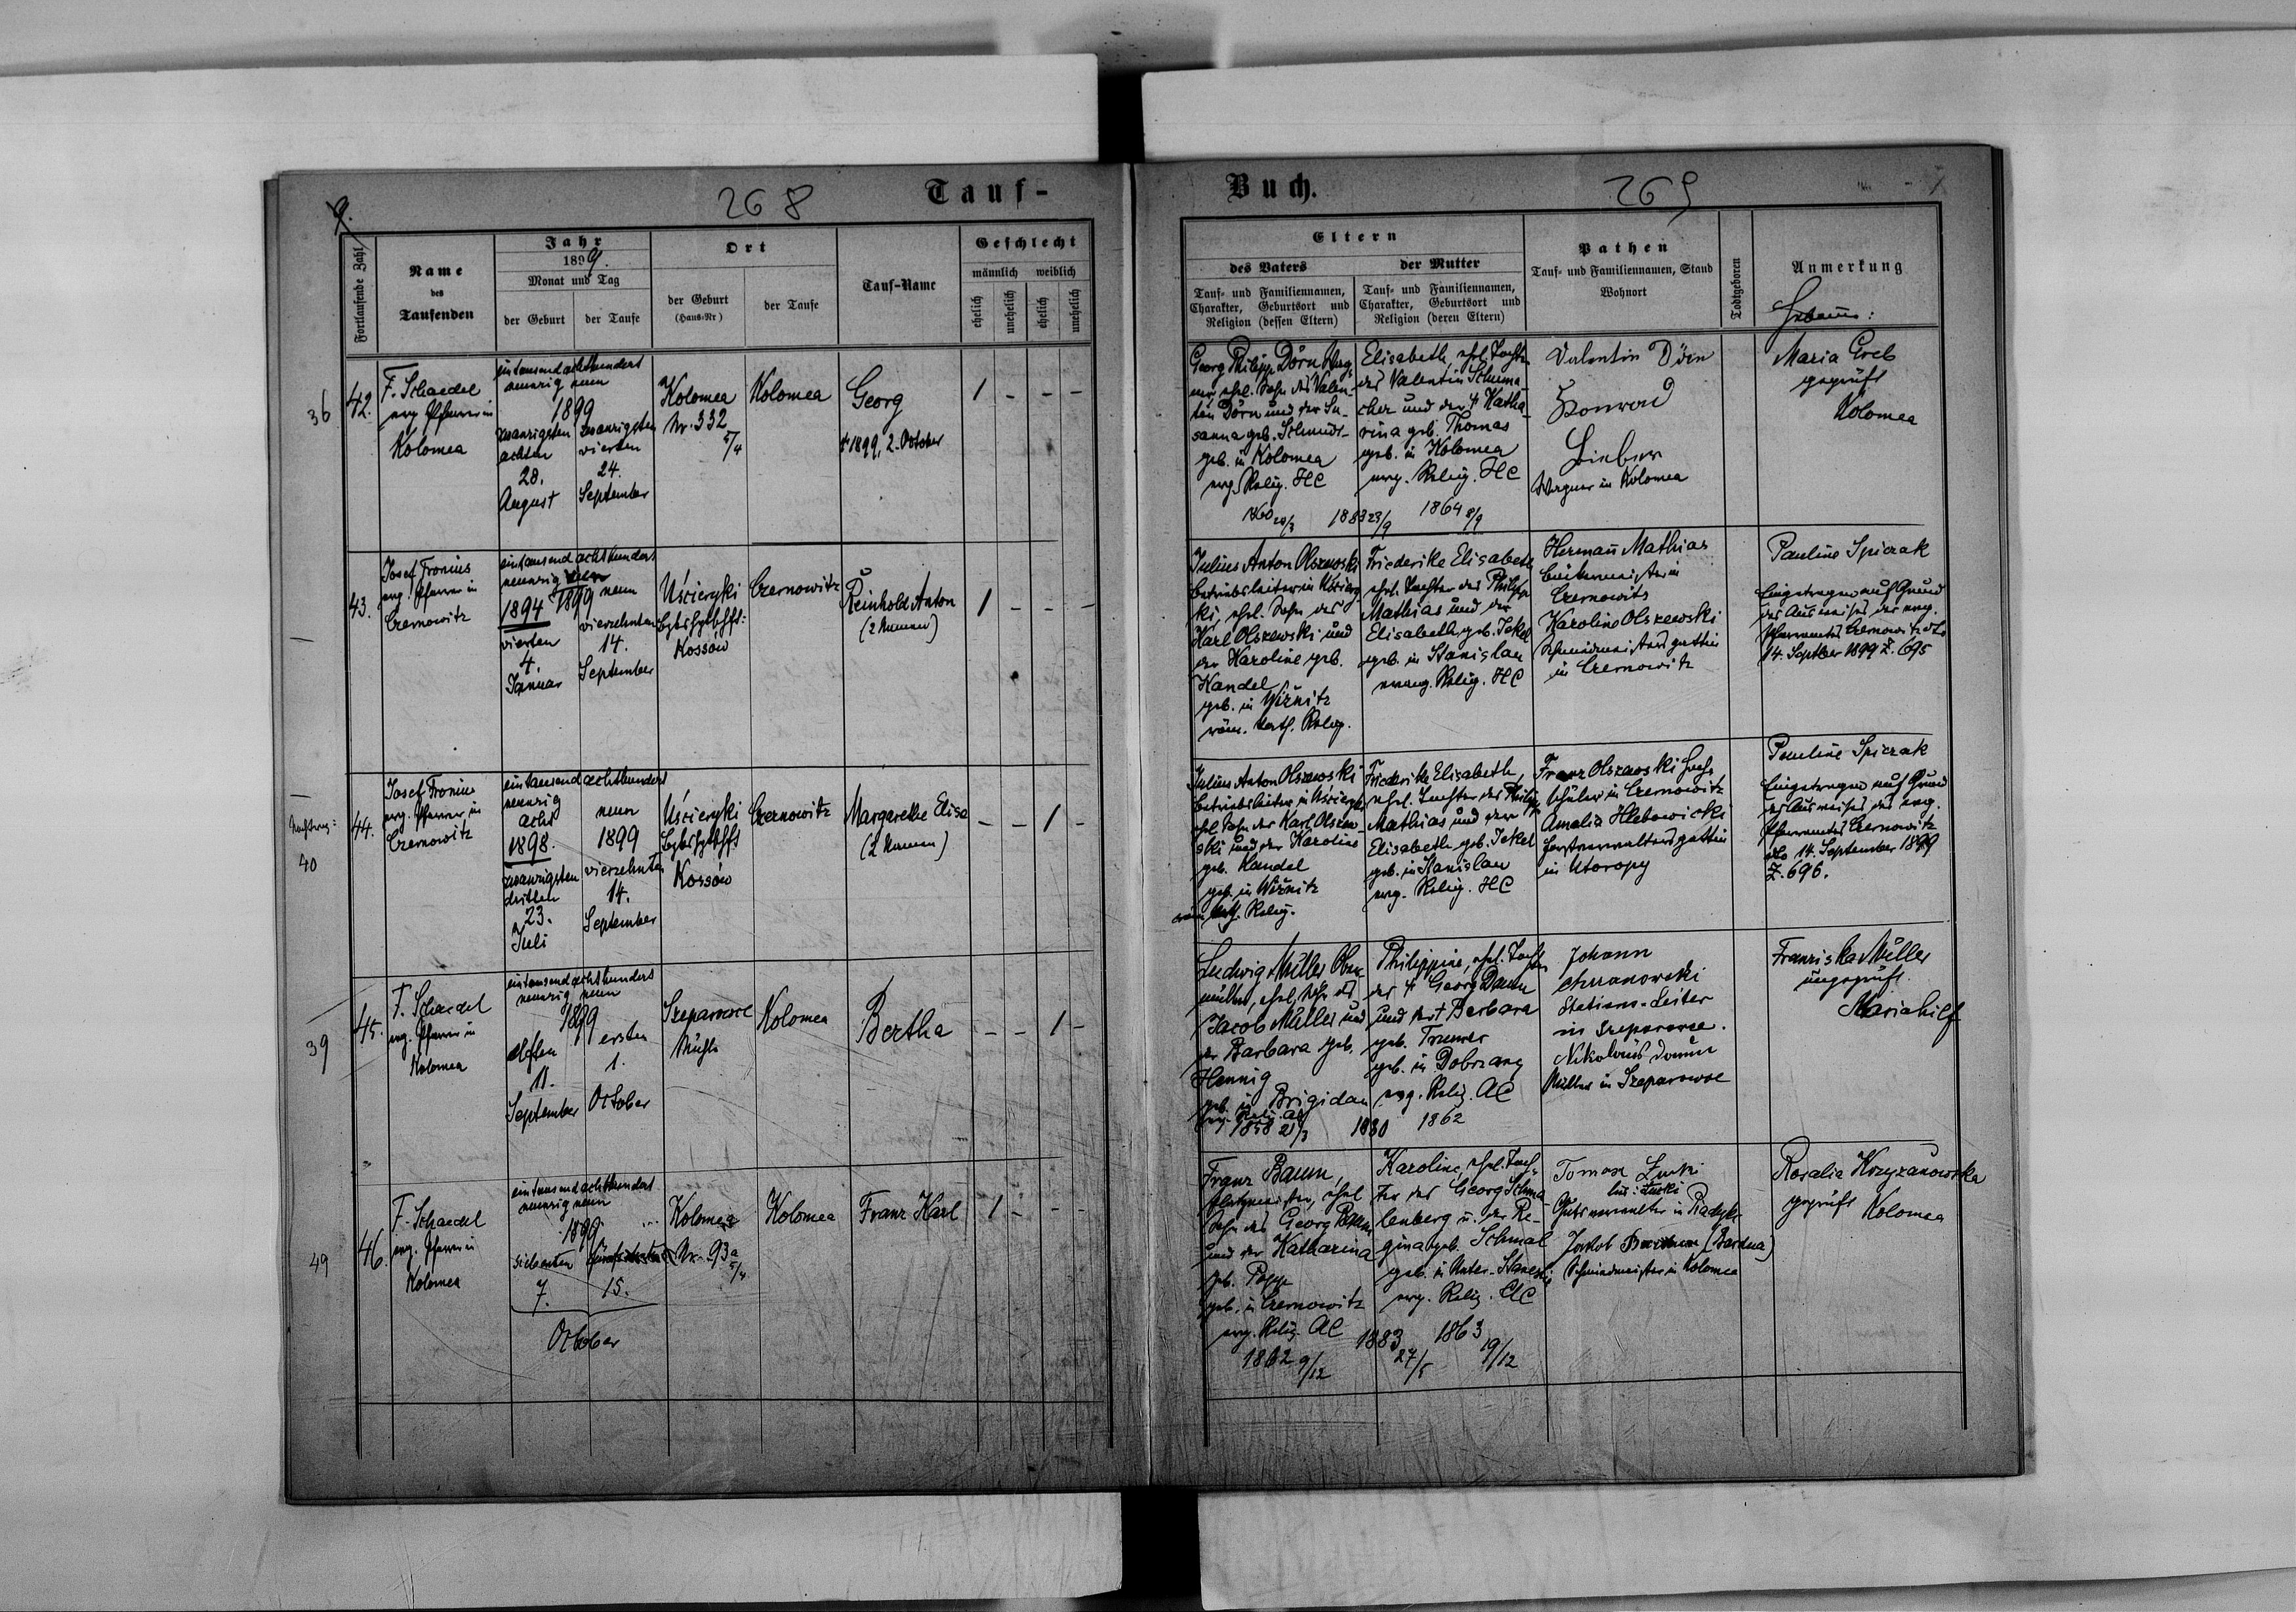 268
Tauf-
9.
Fortlaufende Zahl
Name
des
Taufenden
Jahr
1899.
Monat und Tag
der Geburt
der Taufe
Ort
der Geburt
(Haus-Nr)
der Taufe
Tauf-Name
Geschlecht
männlich
weiblich
ehelich
unehelich
ehelich
unehelich
36
42.
F. Schaedel
evg. Pfarrer in
Kolomea
eintausend achthundert
neunzig neun
1899
zwanzigsten
achten
28.
August
zwanzigsten
vierten
24.
September
Kolomea
Nr. 332
5/4
Kolomea
Georg
† 1899, 2. October
1 - - -
43.
Josef Fronius
evg. Pfarrer in
Czernowitz
eintausend achthundert
neunzig vier
1894
vierten
4.
Januar
neun
1899
vierzehnten
14.
September
Uścieryki
Kossow
Czernowitz
Reinhold Anton
(2 Namen)
1 - - -
Nachtrag:
40
44.
Josef Fronius
evg. Pfarrer in
Czernowitz
eintausend achthundert
neunzig
acht
1898.
zwanzigsten
dritten
23.
Juli
neun
1899
vierzehnten
14.
September
Uścieryki
Kossow
Czernowitz
Margarethe Elisa
(2 Namen)
- - 1 -
39
45.
F. Schaedel
evg. Pfarrer in
Kolomea
eintausend achthundert
neunzig neun
1899
elften
11.
September
ersten
1.
October
Szeparowce
Mühle
Kolomea
Bertha
- - 1 -
49
46.
F. Schaedel
evg. Pfarrer in
Kolomea
eintausend achthundert
neunzig neun
1899
siebenten
7.
fünfzehnten
15.
October
Kolomea
Nr. 93a
5/4
Kolomea
Franz Karl
1 - - -
Buch.
269
Eltern
des Vaters
Tauf- und Familiennamen,
Charakter, Geburtsort und
Religion (dessen Eltern)
der Mutter
Tauf- und Familiennamen,
Charakter, Geburtsort und
Religion (deren Eltern)
Pathen
Tauf- und Familiennamen, Stand
Wohnort
Todtgeboren
Anmerkung
Hebamme:
Georg Philipp Dörn Wag-
ner, ehel. Sohn des Valen-
tin Dörn und der Su-
sanna geb. Schmidt
geb. in Kolomea
evg. Relig. HC
20/3
1883 23/9
Elisabeth, ehel. Tochter
des Valentin Schuma-
cher und der † Katha-
rina geb. Thomas
geb. in Kolomea
evg. Relig. HC
1864 8/9
Valentin Dörn
Konrad
Bieber
Wagner in Kolomea
Maria Greb
geprüft
Kolomea
Julius Anton Olszewski
Betriebsleiter in Uściery-
ki, ehel. Sohn des
Karl Olszewski und
der Karoline geb.
Kandel
geb. in Wiżnitz
röm. kath. Relig.
Friederike Elisabeth
ehel. Tochter des Philipp
Mathias und der
Elisabeth, geb. Jekel
geb. in Stanislau
evang. Relig. HC
Hermann Mathias
Bäckermeister in
Czernowitz
Karoline Olszewski
Schmiedmeistersgattin
in Czernowitz
Pauline Spiczak
Eingetragen auf Grund
des Ausweises des evg.
Pfarramtes Czernowitz dto
14. September 1899 Z. 695
Julius Anton Olszewski
Betriebsleiter in Uścieryki
ehel. Sohn des Karl Olszew-
ski und der Karoline
geb. Kandel
geb. in Wiżnitz
röm. kath. Relig.
Friederike Elisabeth,
ehel. Tochter des Philipp
Mathias und der
Elisabeth geb. Jekel
geb. in Stanislau
evg. Relig. HC
Franz Olszewski
Schüler in Czernowitz
Amalia Hlebowicki
Forstverwaltersgattin
in Utoropy
Pauline Spiczak
Eingetragen auf Grund
des Ausweises des evg.
Pfarramtes Czernowitz
dto 14. September 1899
Z. 696.
Ludwig Müller Ober-
müller, ehel. Sohn des
Jacob Müller und
der Barbara geb.
Hennig
geb. in Brigidau
evg. Relig. AC
1858 21/3
1880
Philippine, ehel. Tochter
des † Georg Daum
und der † Barbara
geb. Trumer
geb. in Dobrzany
evg. Relig. AC
1862
Johann
Stations-Leiter
in Szeparowce.
Nikolaus Daum
Müller in Szeparowce
Franziska Müller
ungeprüft
Mariahilf
Franz Baum,
ehel.
Sohn des Georg Baum
und der Katharina
geb. Popp
geb. in Czernowitz
evg. Relig. AC
1862 9/12
1883
27/5
Karoline, ehel. Toch-
ter des Georg Schma-
lenberg u. der Re-
gina geb. Schmal
geb. in Unter-Stanestie
evg. Relig. AC
1863
19/12
Tomasz Łucki
Gutsverwalter in
Jakob (Bardua)
Schmiedmeister in Kolomea
Rosalia Krzyżanowska
geprüft Kolomea